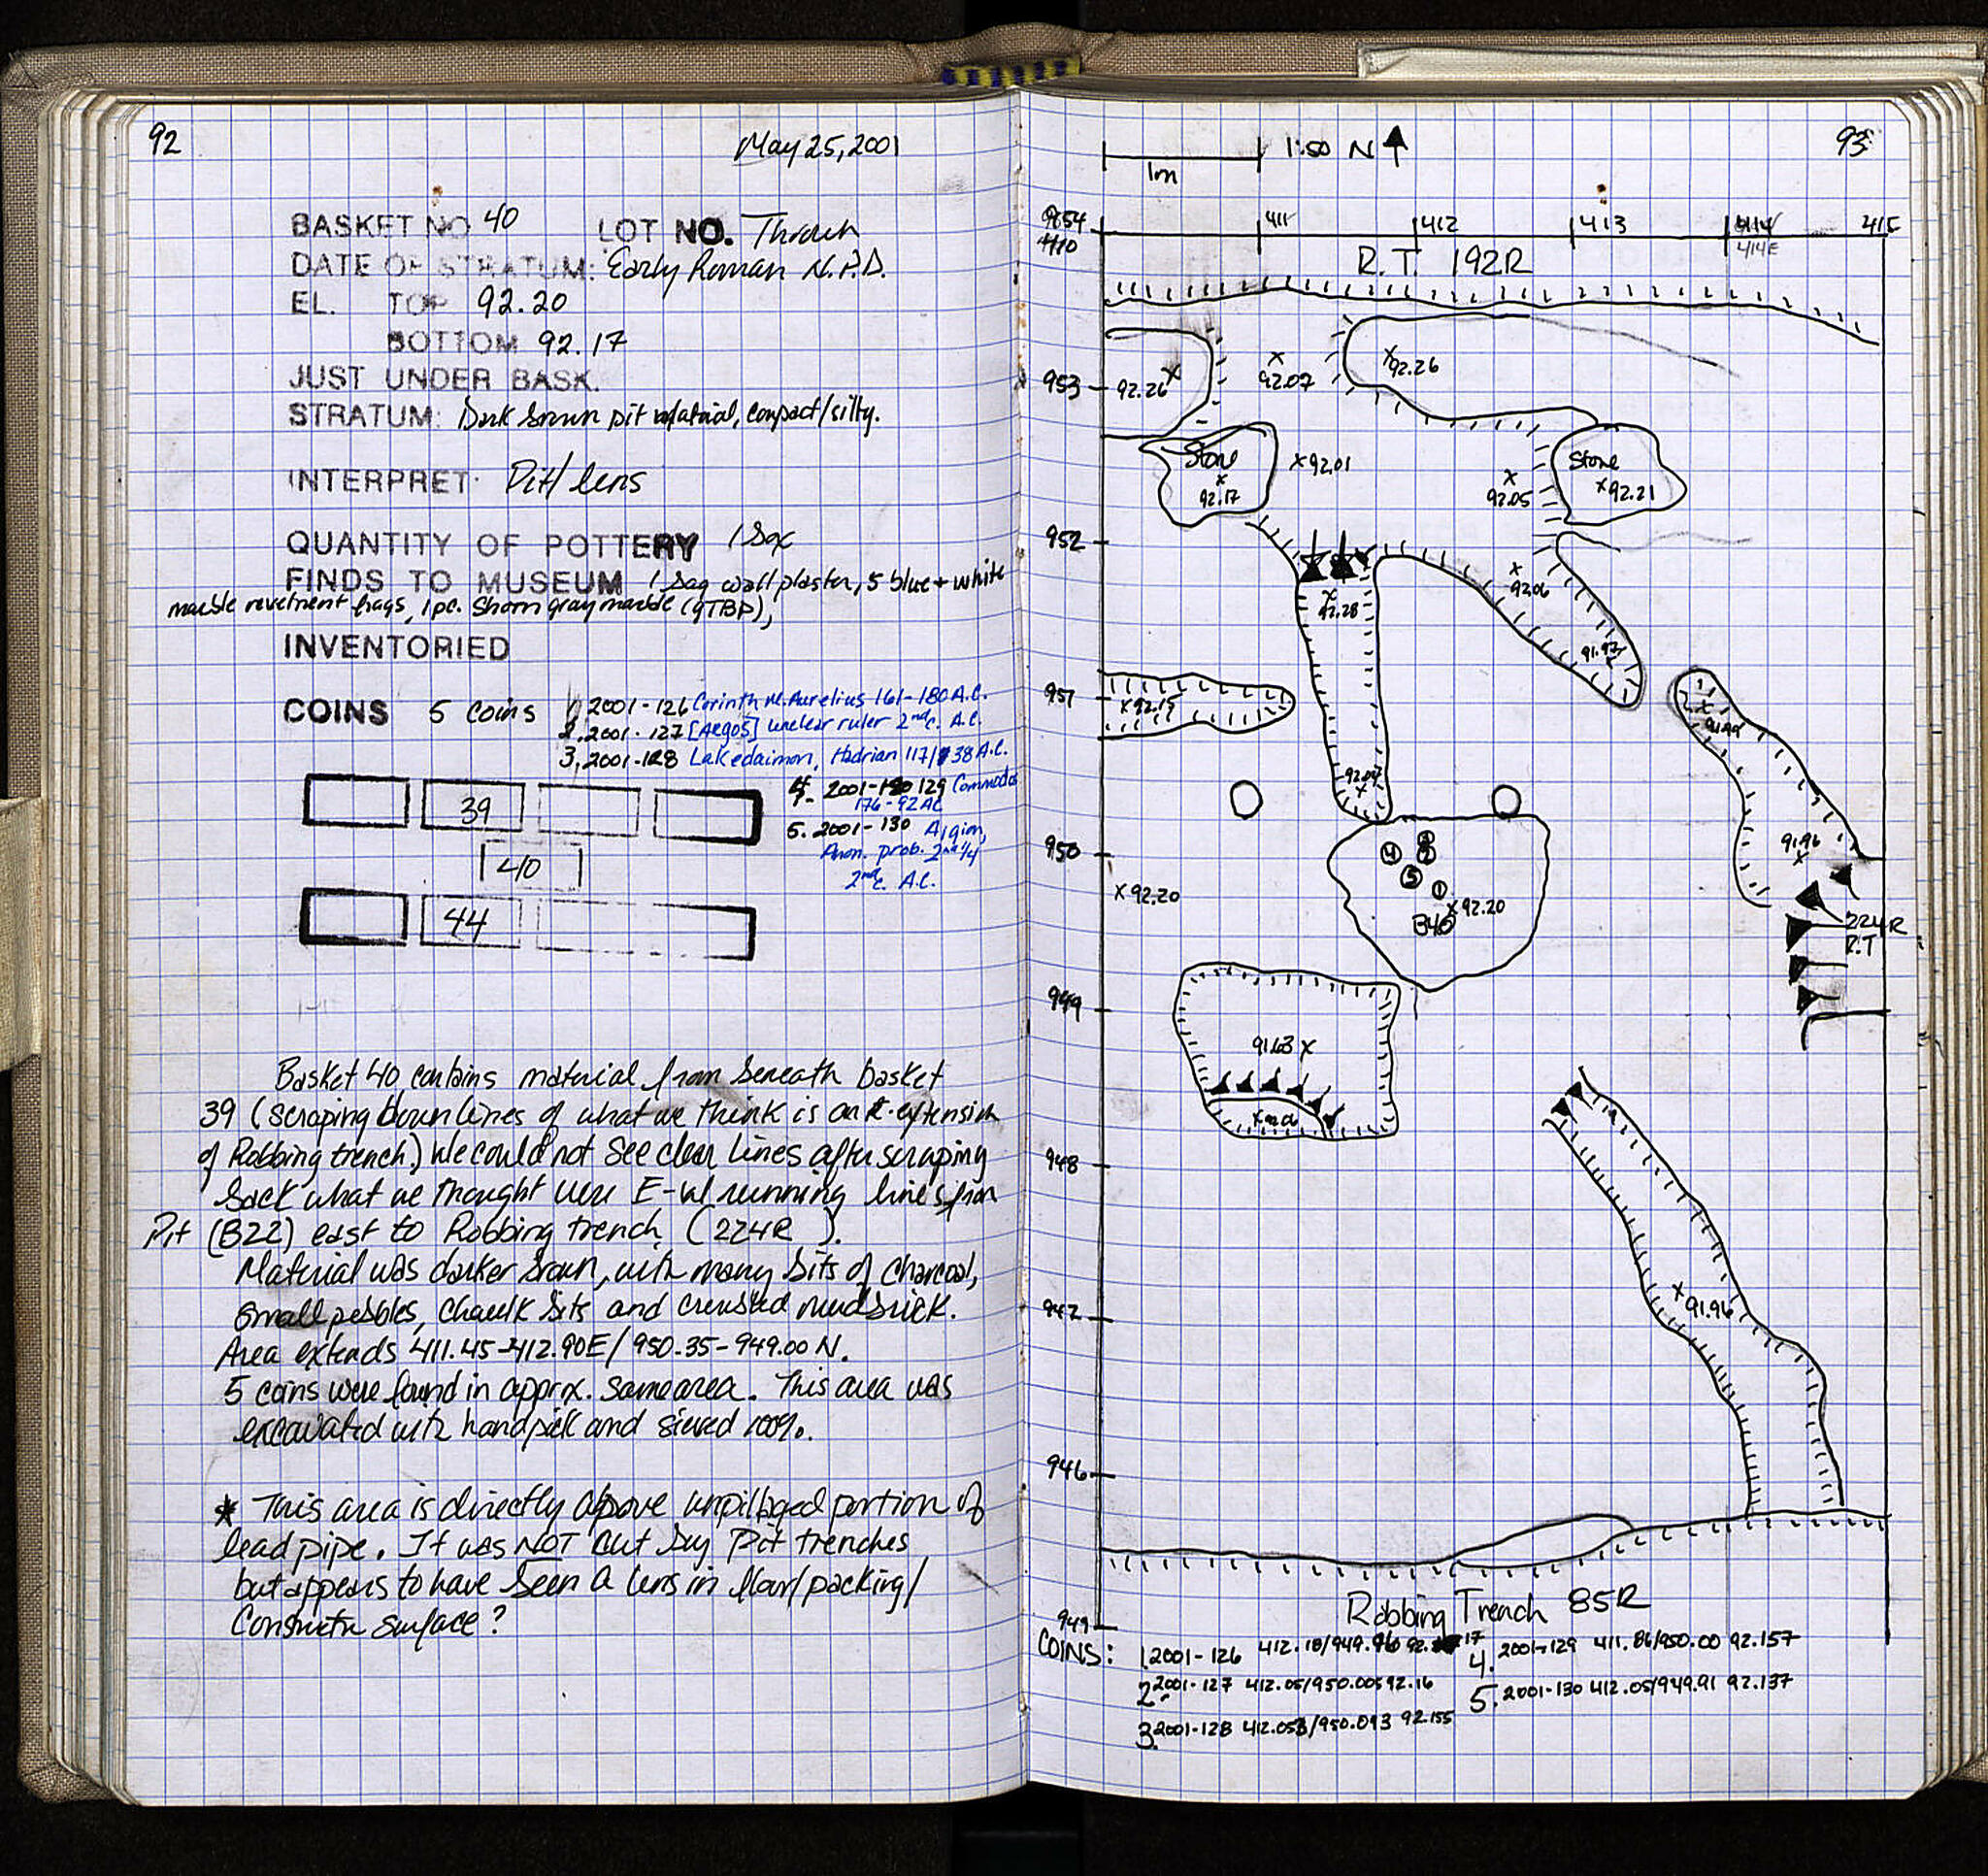 92
May 25, 2001
BASKET NO 40 LOT NO. Thrown
DATE OF STRATUM: Early Roman N.P.D.
EL. TOP 92.20
BOTTOM 92.17
JUST UNDER BASK.
STRATUM: Dark brown pit material, compact/silty.
INTERPRET. Pit/lens
QUANTITY OF POTTERY 1 Bag
FINDS TO MUSEUM 1 bag wall plaster, 5 blue + white
marble revetment frags, 1 pc. gray marble (gTBP),
INVENTORIED
COINS 5 coins 1, 2001-126 Corinth M. Aurelius 161-180 A.C.
2. 2001-127 [Argos] unclear ruler 2nd c. A.C.
3, 2001-128 Lakedaimon, Hadrian 117/138 A.C.
4. 2001-129 Commodus
176-92 AC
5. 2001-130 Aigion,
Anon. prob. 2nd 1/4
2nd c. A.C.
39
40
44
Basket 40 contains material from beneath basket
39 (scraping down lines of what we think is an extension
of Robbing trench.) We could not see clear lines after scraping
back what we thought were E-W running lines from
Pit (B22) east to Robbing trench (224R ).
Material was darker brown, with many bits of charcoal,
small pebbles, chaulk bits and crushed mudbrick.
Area extends 411.45-412.90E/950.35-949.00 N.
5 coins were found in approx. same area. This area was
excavated with handpick and sieved 100%.
* This area is directly above unpillaged portion of
lead pipe. It was NOT cut by Pit trenches
but appears to have been a lens in floor/packing/
Constructn surface?
93
1m 1:50 N
954
410
411
412
413
414
414E
415
R.T. 192R
953
92.26
92.07
92.26
Stone
92.17
92.01
92.05
Stone
92.21
952
92.28
92.06
91.97
951
92.15
92.07
91.96
950
92.20
4
3
2
5
1
92.20
B40
224R
R.T
949
91.63
948
947
91.96
946
Robbing Trench 85R
COINS: 1. 2001-126 412.18/949.96 92.17
2. 2001-127 412.05/950.005 92.16
3. 2001-128 412.053/950.093 92.155
4. 2001-129 411.86/950.00 92.157
5. 2001-130 412.05/949.91 92.137